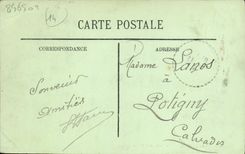 14
CARTE POSTALE
CORRESPONDANCE
ADRESSE
Souvenir
Amitiés
Madame
à
Potigny
Calvados